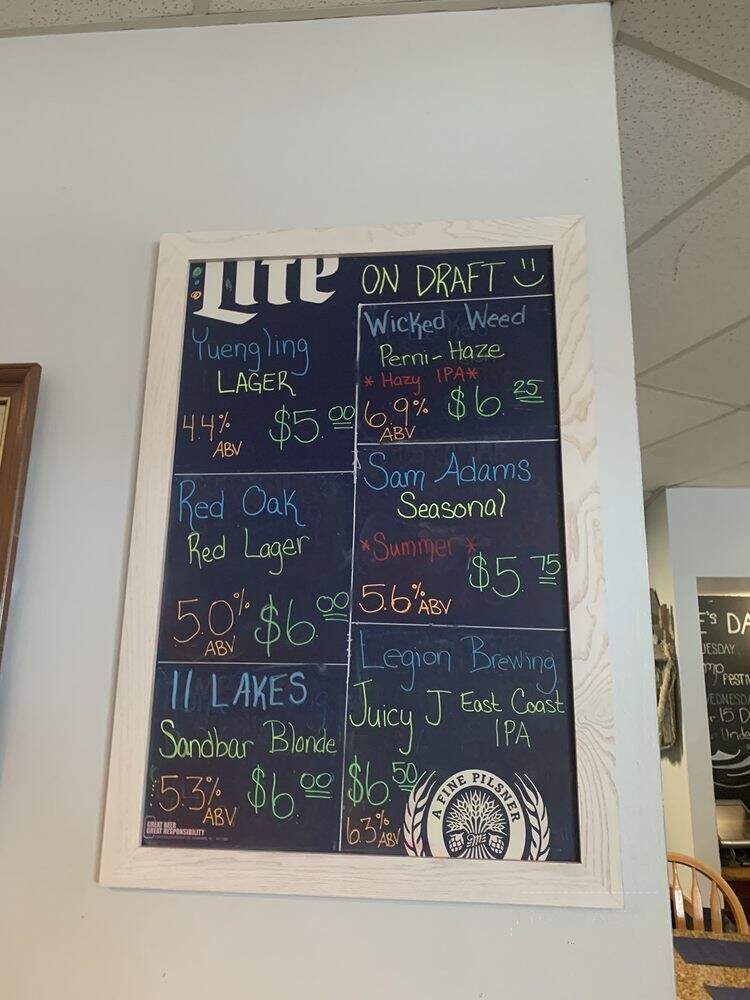 Lite
ON DRAFT
Yuengling
LAGER
4.4%
ABV
$5.00
Red Oak
Red Lager
5.0%
ABV
$6.00
11 LAKES
Sandbar Blonde
5.3%
ABV
$6.00
GREAT BEER
GREAT RESPONSIBILITY
Wicked Weed
Perni-Haze
* Hazy IPA*
6.9%
ABV
$6.25
Sam Adams
Seasonal
*Summer*
$5.75
5.6% ABV
Legion Brewing
Juicy J East Coast
IPA
$6.50
6.3% ABV
A FINE PILSNER